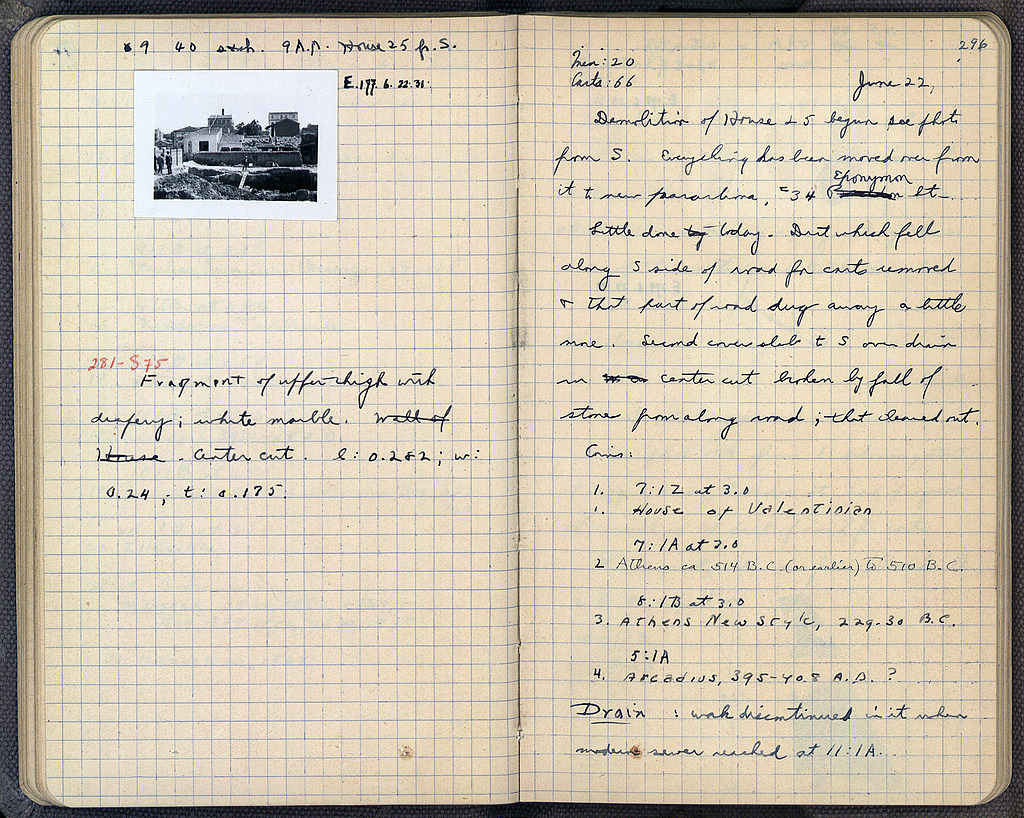 9 40 exch. 9 A.M. House 25 fr. S.
E.177. 6.22.31.
281-S75
Fragment of upper thigh with
drapery; white marble. Wall of
House. Center cut. l: 0.282; w:
0.24; t: 0.175.
296
Men: 20
Carts: 66
June 22,
Demolition of House 25 begun see photo
from S. Everything has been moved over from
Eponymon
it to new, = 34 St.
Little done by today. Dirt which fell
along S side of road for carts removed
+ that part of road dug away a little
more. Second cover slab to S over drain
in center cut broken by fall of
stone from along road; that cleaned out.
Coins:
1. 7:1Z at 3.0
1. House of Valentinian
7:1A at 3.0
2 Athens ca. 514 B.C. (or earlier) to 510 B.C.
8:1B at 3.0
3. Athens New Style, 229-30 B.C.
5:1A
4. Arcadius, 395-408 A.D. ?
Drain : work discontinued in it when
modern sewer reached at 11:1A.